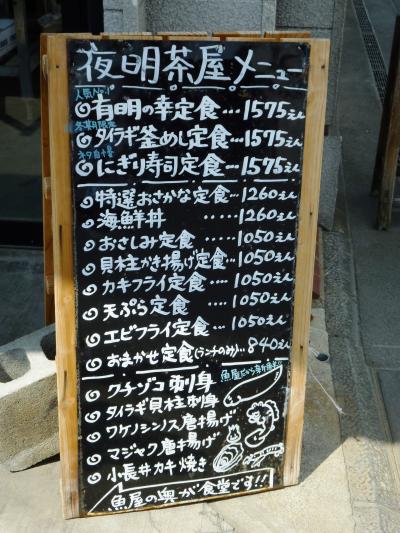 夜明茶屋メニュー
人気No.1
◎有明の幸定食…1575えん
冬期限定
◎タイラギ釜めし定食…1575えん
ネタ自慢
◎にぎり寿司定食…1575えん
◎特選おさかな定食…1260えん
◎海鮮丼 ‥‥‥1260えん
◎おさしみ定食 ‥‥‥1050えん
◎貝柱かき揚げ定食…1050えん
◎カキフライ定食 …1050えん
◎天ぷら定食 ‥‥1050えん
◎エビフライ定食 …1050えん
◎おまかせ定食(ランチのみ)…840えん
◎クチゾコ刺身
◎タイラギ貝柱刺身
◎ワケノシンス唐揚げ
◎マジャク唐揚げ
◎小長井カキ焼き
魚屋だから
魚屋の奥が食堂です!!